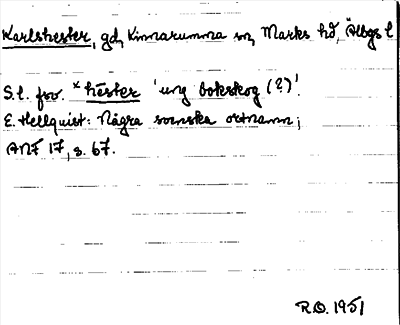 Karlshester, gd, Kinnarumma sn, Marks hd, Älvsgs l
S.l. fsv. *hēster 'ung bokskog (?)'.
E. Hellquist: Några svenska ortnamn;
ANF 17, s. 67.
R.O. 1951